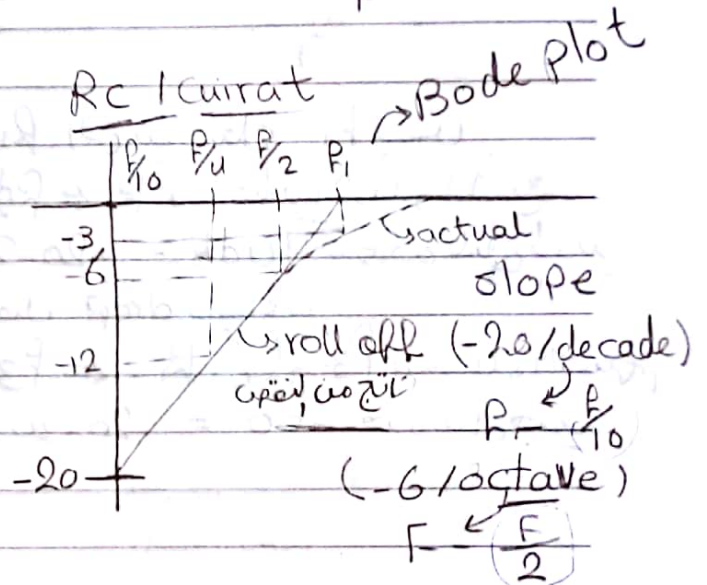 Rc / cuirat → Bode Plot
f/10 f/4 f/2 f1
-3
actual
-6
slope
roll off (-20/decade)
-12
ناتج من
f - f/10
-20
(-6/octave)
F - F/2